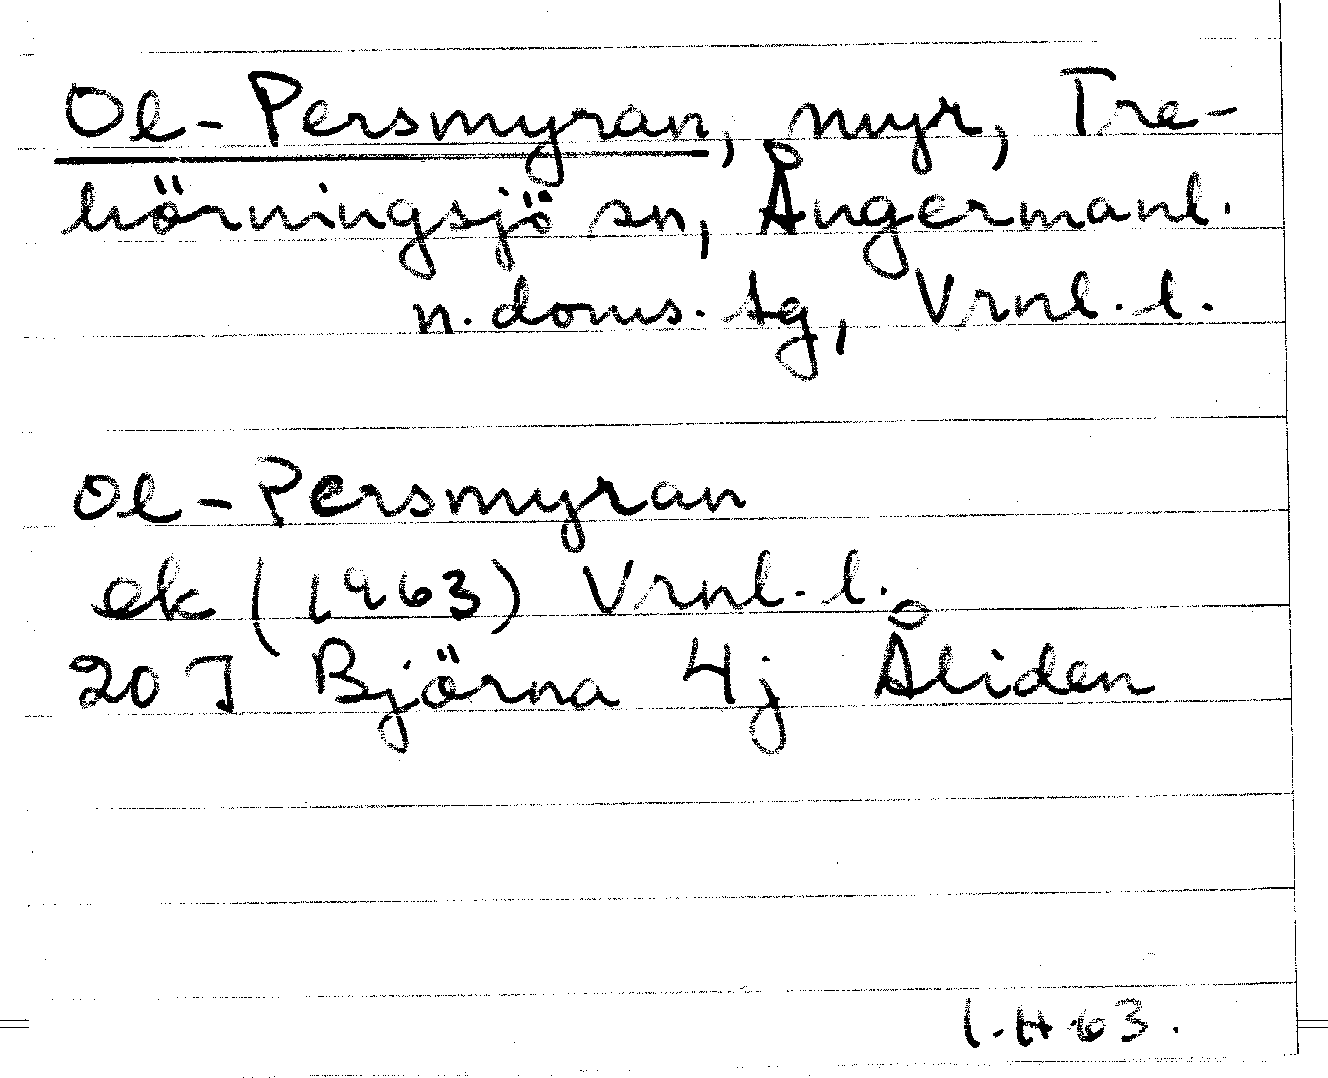 Ol-Persmyran, myr, Tre-
hörningsjö sn, Ångermanl.
n. doms. tg, Vrnl. l.
Ol-Persmyran
ek (1963) Vrnl. l.
20 J Björna 4j Åliden
I.H. 63.